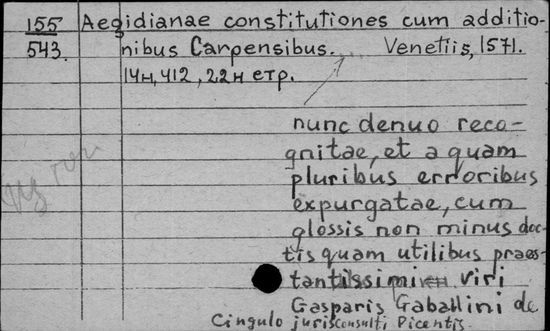 155 Aegidianae constitutiones cum additio-
543. nibus Carpensibus... Venetiis, 1571.
14н, 412, 22н стр.
nunc denuo reco-
gnitae, et a quam
pluribus erroribus
expurgatae, cum
glossis non minus doc-
tis quam utilibus praes-
tantissimi viri
Gasparis Gaballini de
Cingulo jurisconsulti Picentis.